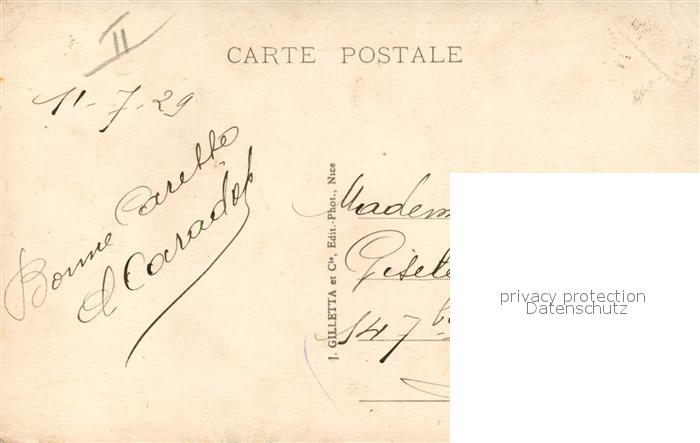 II
CARTE POSTALE
11-7-29
Bonne Caresse
J. GILLETTA et Cie, Edit.-Phot., Nice
Madem
Gisele
147 b
privacy protection
Datenschutz